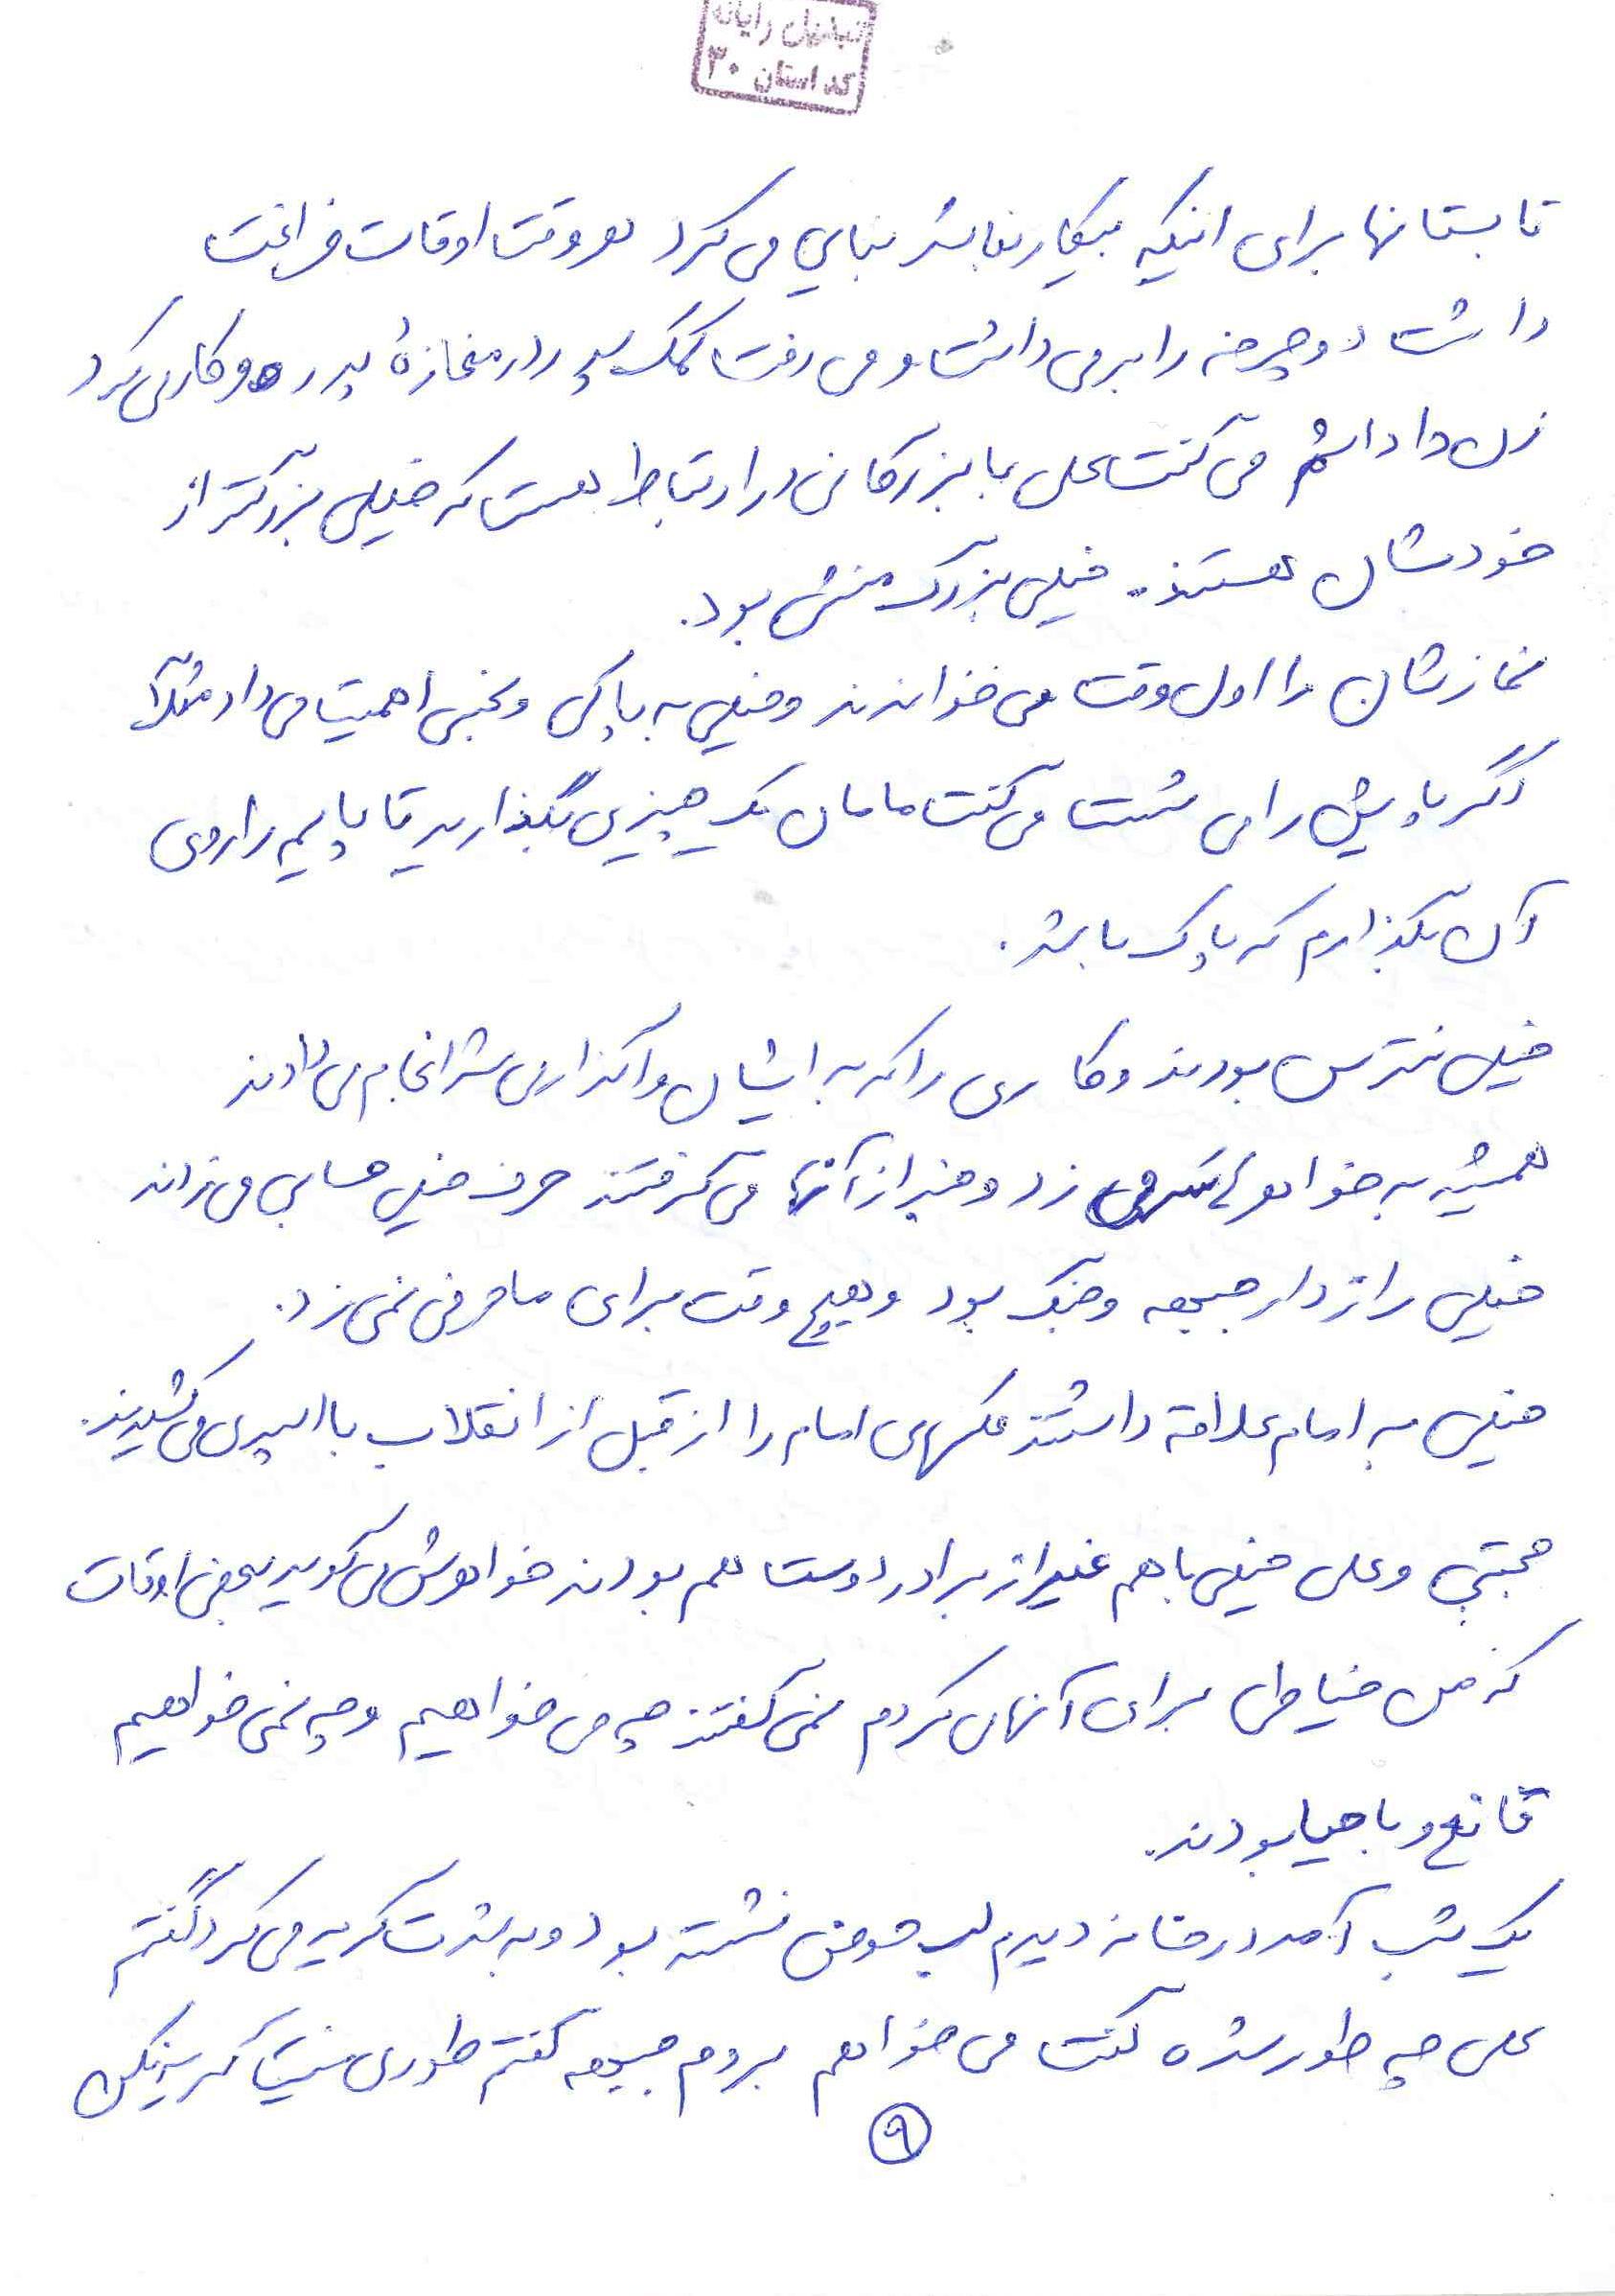 تبدیل رایانه
کد استان ۳۰
تابستانها برای اینکه بیکار نباشد بنایی می کرد هر وقت اوقات فراغت
داشت دوچرخه را برمی داشت و می رفت کمک پدر در مغازهٔ پدر و کار می کرد
زن داداشم می گفت علی با بزرگانی در ارتباط هست که خیلی بزرگتر از
خودشان هستند. خیلی بزرگ منش بود.
نمازشان را اول وقت می خواندند و خیلی به پاکی و نجسی اهمیت می داد مثلاً
اگر پایش را می شست می گفت مامان یک چیزی بگذارید تا پایم را روی
آن بگذارم که پاک باشد.
خیلی نترس بودند و کاری را که به ایشان واگذار می شد انجام می دادند
همیشه به خواهرش سر می زد و خبر از آنها می گرفتند حرف خیلی حسابی می زدند
خیلی رازدار جبهه و جنگ بود و هیچ وقت برای ما حرفی نمی زد.
خیلی به امام علاقه داشتند عکسهای امام را از قبل از انقلاب با اسپری می کشیدند.
مجتبی و علی خیلی با هم غیر از برادر دوست هم بودند خواهرش می گوید بعضی اوقات
که من خیاطی برای آنها می کردم نمی گفتند چه می خواهیم و چه نمی خواهیم
قانع و با حیا بودند.
یک شب آمد در خانه دیدم لب حوض نشسته بود و به شدت گریه می کرد گفتم
علی چه طور شده گفت می خواهم بروم جبهه گفتم طوری نیست گریه نکن
۹